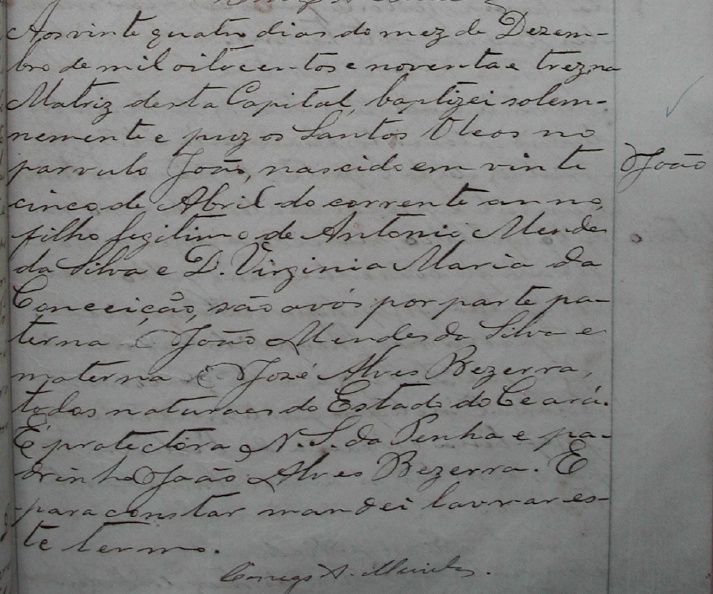 Aos vinte quatro dias do mez de Dezem-
bro de mil oitocentos e noventa e trez na
Matriz desta Capital, baptizei solem-
nemente e puz os Santos Oleos no
parvulo João, nascido em vinte
João
cinco de Abril do corrente anno,
filho legitimo de Antonio Mendes
da Silva e D. Virginia Maria da
Conceição, são avós por parte pa-
terna João Mendes da Silva e
materna José Alves Bezerra,
todos naturaes do Estado do Ceará.
É protectora N. S. da Penha e pa-
drinho João Alves Bezerra. E
para constar mandei lavrar es-
te termo.
Conego A.